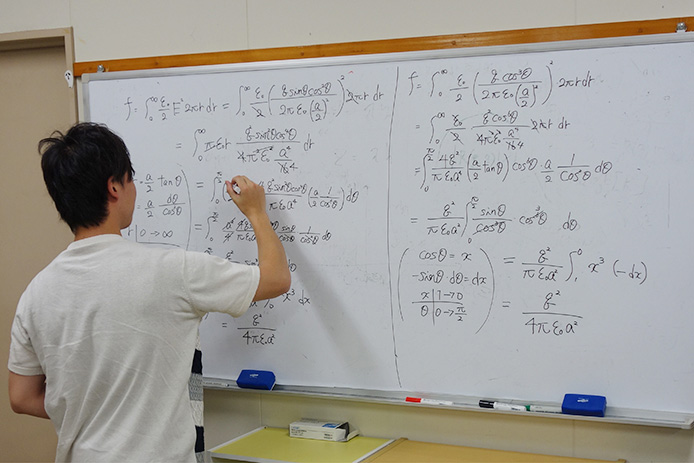 f = ∫₀^∞ ε₀/2 E² 2πr dr = ∫₀^∞ ε₀/2 ( q sinθ cos²θ / 2πε₀(a/2)² )² 2πr dr
= ∫₀^∞ πε₀r q² sin²θ cos⁴θ / 4π²ε₀² a⁴/16 dr
a/2 tanθ = ∫₀^{π/2}
a/2 dθ/cos²θ
r | 0 → ∞
= ∫₀^{π/2}
x³ dx
= q² / 4πε₀a²
f = ∫₀^∞ ε₀/2 ( q cos³θ / 2πε₀(a/2)² )² 2πr dr
= ∫₀^∞ ε₀/2 q² cos⁶θ / 4π²ε₀² a⁴/16 2πr dr
= ∫₀^{π/2} 4q² / πε₀a⁴ (a/2 tanθ) cos⁶θ a/2 1/cos²θ dθ
= q² / πε₀a² ∫₀^{π/2} sinθ/cosθ cos⁴θ dθ
cosθ = x
-sinθ·dθ = dx
x | 1 → 0
θ | 0 → π/2
= q² / πε₀a² ∫₁⁰ x³ (-dx)
= q² / 4πε₀a²